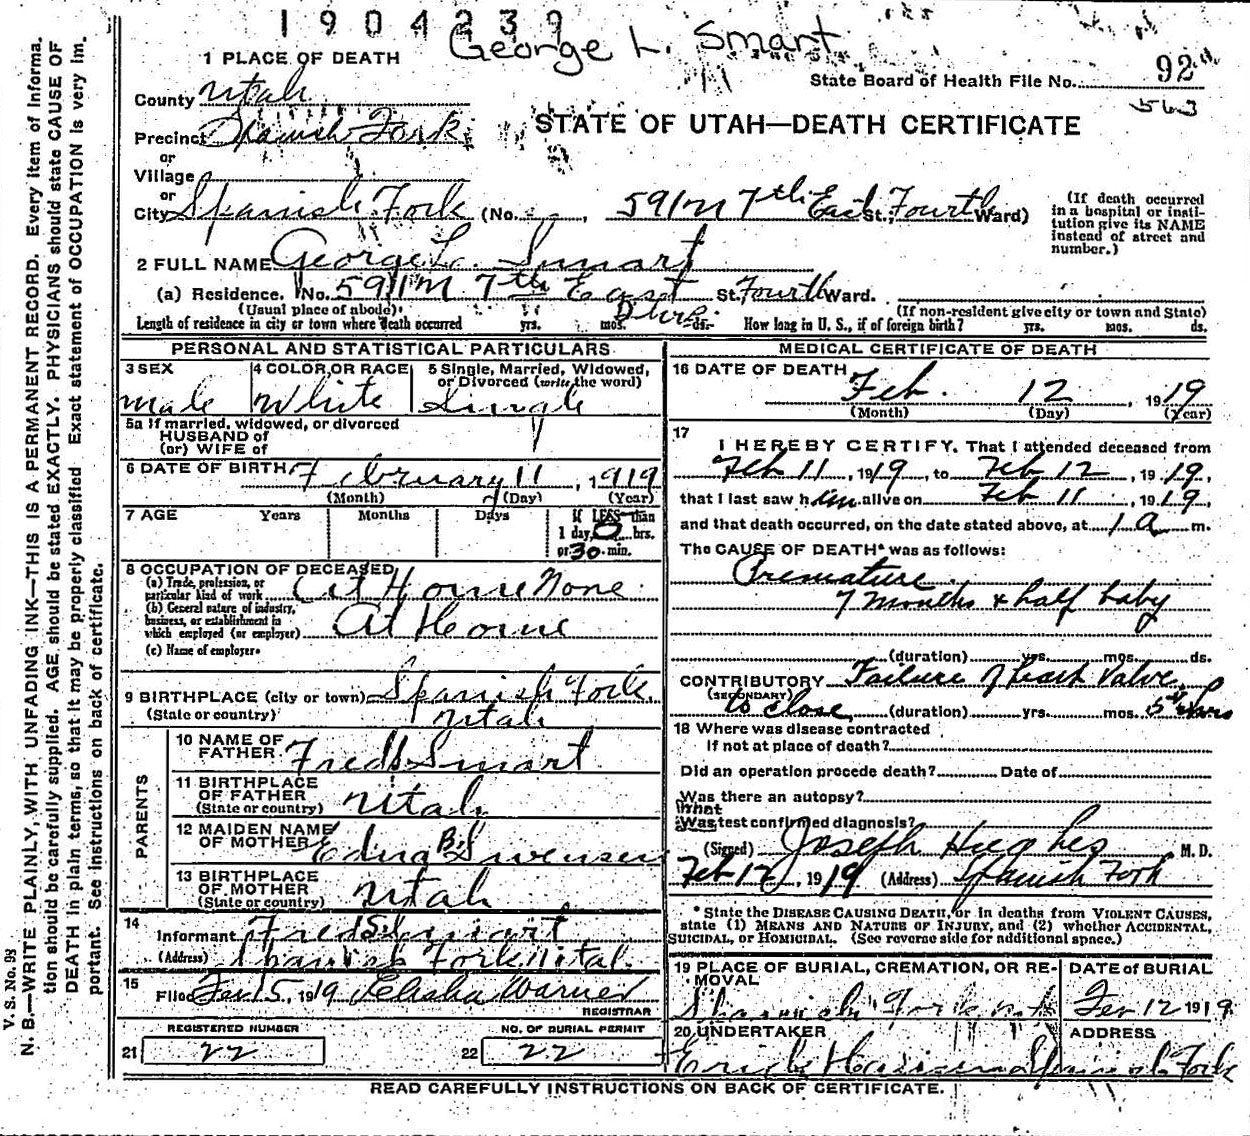 1904239
George L. Smart
1 PLACE OF DEATH
State Board of Health File No. 92
563
County Utah
STATE OF UTAH—DEATH CERTIFICATE
Precinct Spanish Fork
or
Village
or
City Spanish Fork (No. , 591 M 7th East St., Fourth Ward)
(If death occurred in a hospital or institution give its NAME instead of street and number.)
2 FULL NAME George L. Smart
(a) Residence. No. 591 M 7th East St. Fourth Ward.
(Usual place of abode) (If non-resident give city or town and State)
Length of residence in city or town where death occurred yrs. mos. ds. How long in U. S., if of foreign birth? yrs. mos. ds.
PERSONAL AND STATISTICAL PARTICULARS
3 SEX 4 COLOR OR RACE 5 Single, Married, Widowed, or Divorced (write the word)
male White Single
5a If married, widowed, or divorced
HUSBAND of
(or) WIFE of
6 DATE OF BIRTH February 11, 1919
(Month) (Day) (Year)
7 AGE Years Months Days If LESS than
1 day, 0 hrs.
or 30 min.
8 OCCUPATION OF DECEASED
(a) Trade, profession, or particular kind of work At Home None
(b) General nature of industry, business, or establishment in which employed (or employer) At Home
(c) Name of employer
9 BIRTHPLACE (city or town) Spanish Fork.
(State or country) Utah
PARENTS
10 NAME OF FATHER Fred S. Smart
11 BIRTHPLACE OF FATHER (State or country) Utah
12 MAIDEN NAME OF MOTHER Edna B. Swensen
13 BIRTHPLACE OF MOTHER (State or country) Utah
14 Informant Fred S. Smart
(Address) Spanish Fork Utah.
15 Filed Feb 15, 1919 Elisha Warner
REGISTRAR
REGISTERED NUMBER NO. OF BURIAL PERMIT
21 22 22 22
MEDICAL CERTIFICATE OF DEATH
16 DATE OF DEATH
Feb. 12, 1919
(Month) (Day) (Year)
17 I HEREBY CERTIFY. That I attended deceased from
Feb 11, 1919, to Feb 12, 1919,
that I last saw him alive on Feb 11, 1919,
and that death occurred, on the date stated above, at 1 a m.
The CAUSE OF DEATH* was as follows:
Premature
7 months & half baby
(duration) yrs. mos. ds.
CONTRIBUTORY Failure of heart valve
(SECONDARY)
to close (duration) yrs. mos. 5
18 Where was disease contracted
If not at place of death?
Did an operation precede death? Date of
Was there an autopsy?
What
Was test confirmed diagnosis?
(Signed) Joseph Hughes M. D.
Feb 12, 1919 (Address) Spanish Fork
* State the DISEASE CAUSING DEATH, or in deaths from VIOLENT CAUSES,
state (1) MEANS AND NATURE OF INJURY, and (2) whether ACCIDENTAL,
SUICIDAL, or HOMICIDAL. (See reverse side for additional space.)
19 PLACE OF BURIAL, CREMATION, OR REMOVAL DATE of BURIAL
Spanish Fork ut Feb 12 1919
20 UNDERTAKER ADDRESS
Erick Hansen Spanish Fork
READ CAREFULLY INSTRUCTIONS ON BACK OF CERTIFICATE.
V. S. No. 93
N. B.—WRITE PLAINLY, WITH UNFADING INK—THIS IS A PERMANENT RECORD. Every item of informa-
tion should be carefully supplied. AGE should be stated EXACTLY. PHYSICIANS should state CAUSE OF
DEATH in plain terms, so that it may be properly classified. Exact statement of OCCUPATION is very im-
portant. See instructions on back of certificate.